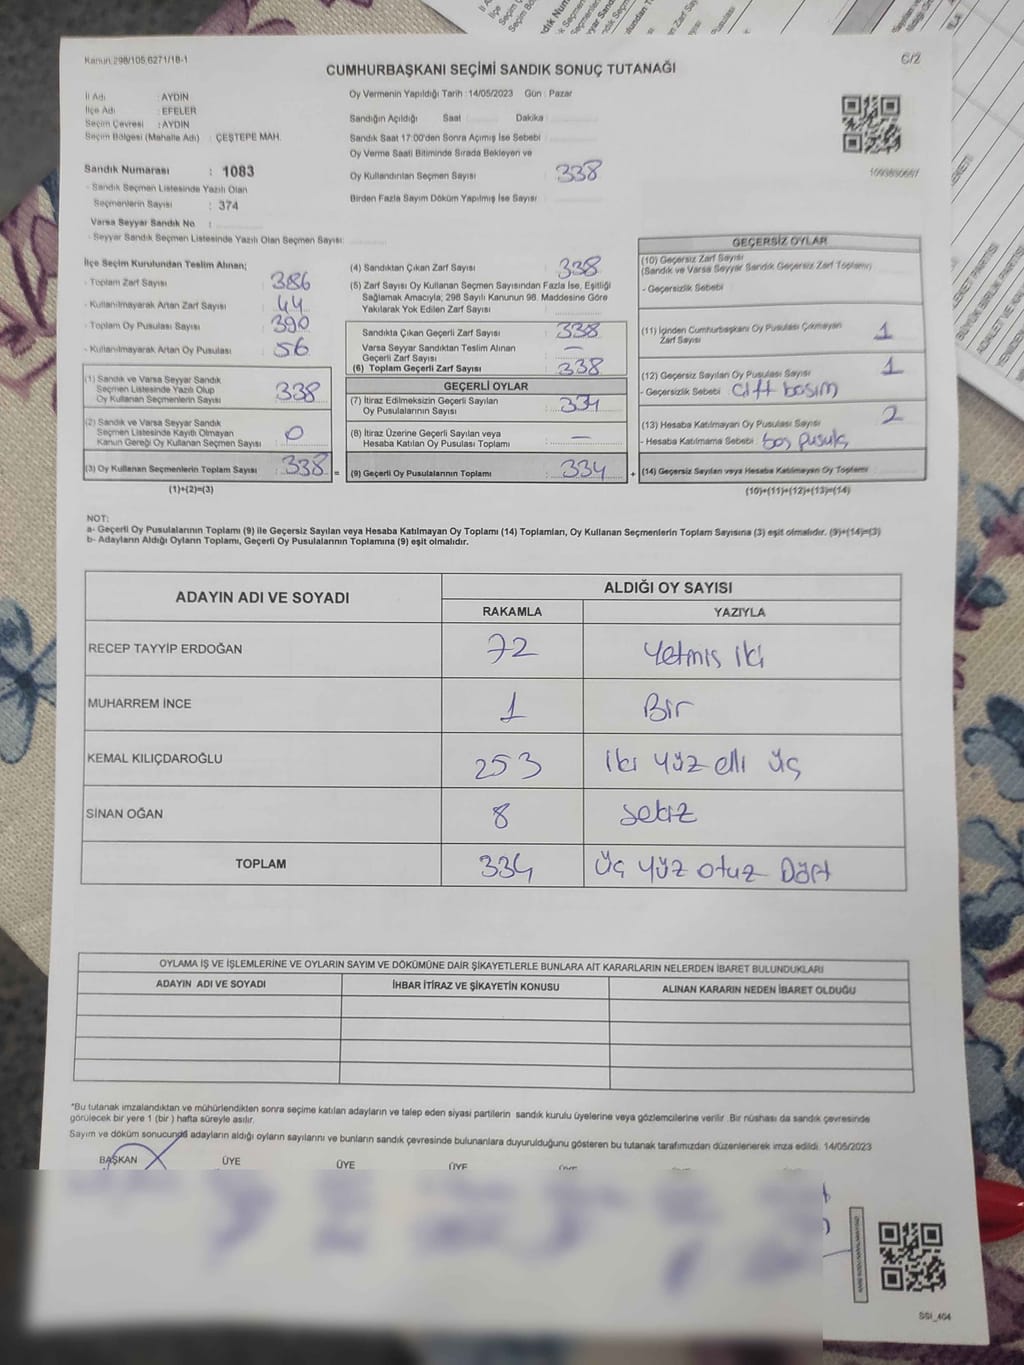 Kanun.298/105,6271/18-1
C/2
CUMHURBAŞKANI SEÇİMİ SANDIK SONUÇ TUTANAĞI
İl Adı : AYDIN
İlçe Adı : EFELER
Seçim Çevresi : AYDIN
Seçim Bölgesi (Mahalle Adı) : ÇEŞTEPE MAH.
Sandık Numarası : 1083
- Sandık Seçmen Listesinde Yazılı Olan
Seçmenlerin Sayısı : 374
Varsa Seyyar Sandık No :
- Seyyar Sandık Seçmen Listesinde Yazılı Olan Seçmen Sayısı:
Oy Vermenin Yapıldığı Tarih : 14/05/2023 Gün : Pazar
Sandığın Açıldığı Saat Dakika
Sandık Saat 17:00'den Sonra Açımış İse Sebebi
Oy Verme Saati Bitiminde Sırada Bekleyen ve
Oy Kullandırılan Seçmen Sayısı : 338
Birden Fazla Sayım Döküm Yapılmış İse Sayısı :
1093830667
İlçe Seçim Kurulundan Teslim Alınan;
- Toplam Zarf Sayısı : 386
- Kullanılmayarak Artan Zarf Sayısı : 44
- Toplam Oy Pusulası Sayısı : 390
- Kullanılmayarak Artan Oy Pusulası : 56
(1) Sandık ve Varsa Seyyar Sandık
Seçmen Listesinde Yazılı Olup
Oy Kullanan Seçmenlerin Sayısı : 338
(2) Sandık ve Varsa Seyyar Sandık
Seçmen Listesinde Kayıtlı Olmayan
Kanun Gereği Oy Kullanan Seçmen Sayısı : 0
(3) Oy Kullanan Seçmenlerin Toplam Sayısı : 338 =
(1)+(2)=(3)
(4) Sandıktan Çıkan Zarf Sayısı : 338
(5) Zarf Sayısı Oy Kullanan Seçmen Sayısından Fazla İse, Eşitliği
Sağlamak Amacıyla; 298 Sayılı Kanunun 98. Maddesine Göre
Yakılarak Yok Edilen Zarf Sayısı :
Sandıkta Çıkan Geçerli Zarf Sayısı : 338
Varsa Seyyar Sandıktan Teslim Alınan
Geçerli Zarf Sayısı : —
(6) Toplam Geçerli Zarf Sayısı : 338
GEÇERLİ OYLAR
(7) İtiraz Edilmeksizin Geçerli Sayılan
Oy Pusulalarının Sayısı : 334
(8) İtiraz Üzerine Geçerli Sayılan veya
Hesaba Katılan Oy Pusulası Toplamı : —
(9) Geçerli Oy Pusulalarının Toplamı : 334 +
GEÇERSİZ OYLAR
(10) Geçersiz Zarf Sayısı
(Sandık ve Varsa Seyyar Sandık Geçersiz Zarf Toplamı)
- Geçersizlik Sebebi
(11) İçinden Cumhurbaşkanı Oy Pusulası Çıkmayan
Zarf Sayısı 1
(12) Geçersiz Sayılan Oy Pusulası Sayısı 1
- Geçersizlik Sebebi Çift basım
(13) Hesaba Katılmayan Oy Pusulası Sayısı 2
- Hesaba Katılmama Sebebi : boş pusula
(14) Geçersiz Sayılan veya Hesaba Katılmayan Oy Toplamı
(10)+(11)+(12)+(13)=(14)
NOT:
a- Geçerli Oy Pusulalarının Toplamı (9) ile Geçersiz Sayılan veya Hesaba Katılmayan Oy Toplamı (14) Toplamları, Oy Kullanan Seçmenlerin Toplam Sayısına (3) eşit olmalıdır. (9)+(14)=(3)
b- Adayların Aldığı Oyların Toplamı, Geçerli Oy Pusulalarının Toplamına (9) eşit olmalıdır.
ADAYIN ADI VE SOYADI
ALDIĞI OY SAYISI
RAKAMLA YAZIYLA
RECEP TAYYİP ERDOĞAN 72 Yetmiş iki
MUHARREM İNCE 1 Bir
KEMAL KILIÇDAROĞLU 253 iki yüz elli üç
SİNAN OĞAN 8 sekiz
TOPLAM 334 Üç yüz otuz Dört
OYLAMA İŞ VE İŞLEMLERİNE VE OYLARIN SAYIM VE DÖKÜMÜNE DAİR ŞİKAYETLERLE BUNLARA AİT KARARLARIN NELERDEN İBARET BULUNDUKLARI
ADAYIN ADI VE SOYADI İHBAR İTİRAZ VE ŞİKAYETİN KONUSU ALINAN KARARIN NEDEN İBARET OLDUĞU
*Bu tutanak imzalandıktan ve mühürlendikten sonra seçime katılan adayların ve talep eden siyasi partilerin sandık kurulu üyelerine veya gözlemcilerine verilir. Bir nüshası da sandık çevresinde
görülecek bir yere 1 (bir ) hafta süreyle asılır.
Sayım ve döküm sonucunda adayların aldığı oyların sayılarını ve bunların sandık çevresinde bulunanlara duyurulduğunu gösteren bu tutanak tarafımızdan düzenlenerek imza edildi. 14/05/2023
BAŞKAN ÜYE ÜYE ÜYE
SSI_404